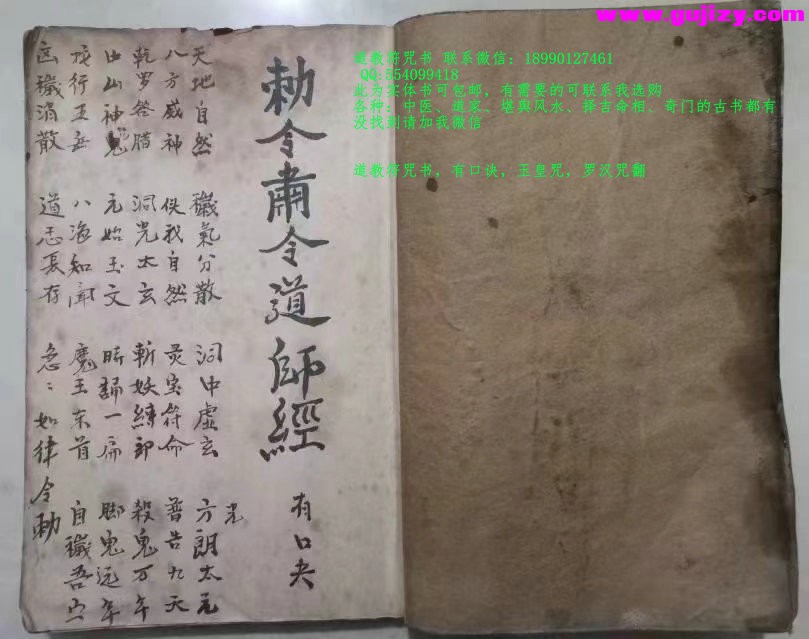 www.gujizy.com
道教符咒书 联系微信：18990127461
QQ:554099418
此为实体书可包邮，有需要的可联系我选购
各种：中医、道家、堪舆风水、择吉命相、奇门的古书都有
没找到请加我微信
道教符咒书，有口诀，玉皇咒，罗汉咒翻
勅令肅令道師經
有口夫
光
天地自然 穢氣分散 洞中虛玄 方朗太元
八方威神 使我自然 灵宝符命 普告九天
乾罗答腊 洞光太玄 斬妖縛邪 殺鬼万年
山神鬼 元始玉文 誦一 鬼远年
行五 八海知聞 魔王束首 自穢吾
凶穢消散 道炁長存 急：如律令勅